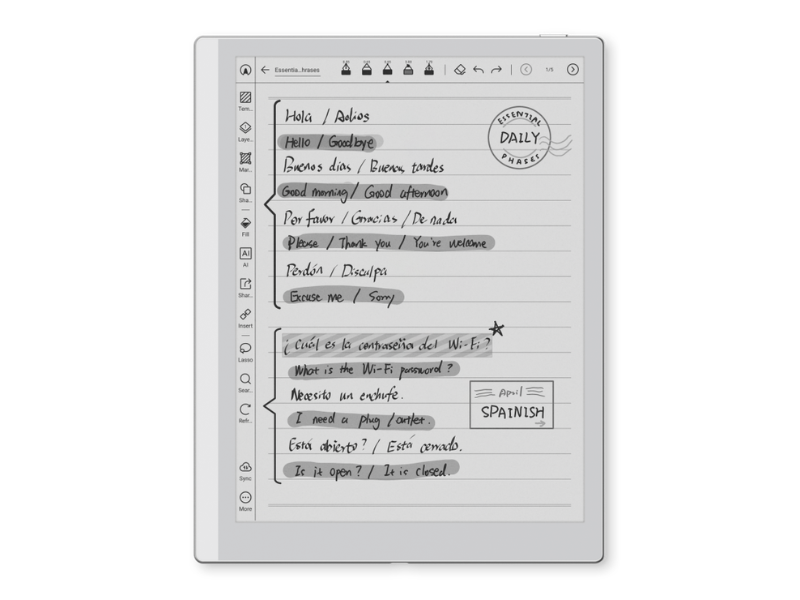 Essentia...hrases
1/5
Tem...
Laye...
Mar...
Sha...
Fill
AI
AI
Shar...
Insert
Lasso
Sear...
Refr...
Sync
More
Hola / Adios
Hello / Goodbye
Buenos dias / Buenas tardes
Good morning / Good afternoon
Por favor / Gracias / De nada
Please / Thank you / You're welcome
Perdón / Disculpa
Excuse me / Sorry
ESSENTIAL
DAILY
PHASES
¿Cuál es la contraseña del Wi-Fi?
What is the Wi-Fi password?
Necesito un enchufe.
I need a plug / outlet.
Está abierto? / Está cerrado.
Is it open? / It is closed.
April
SPAINISH